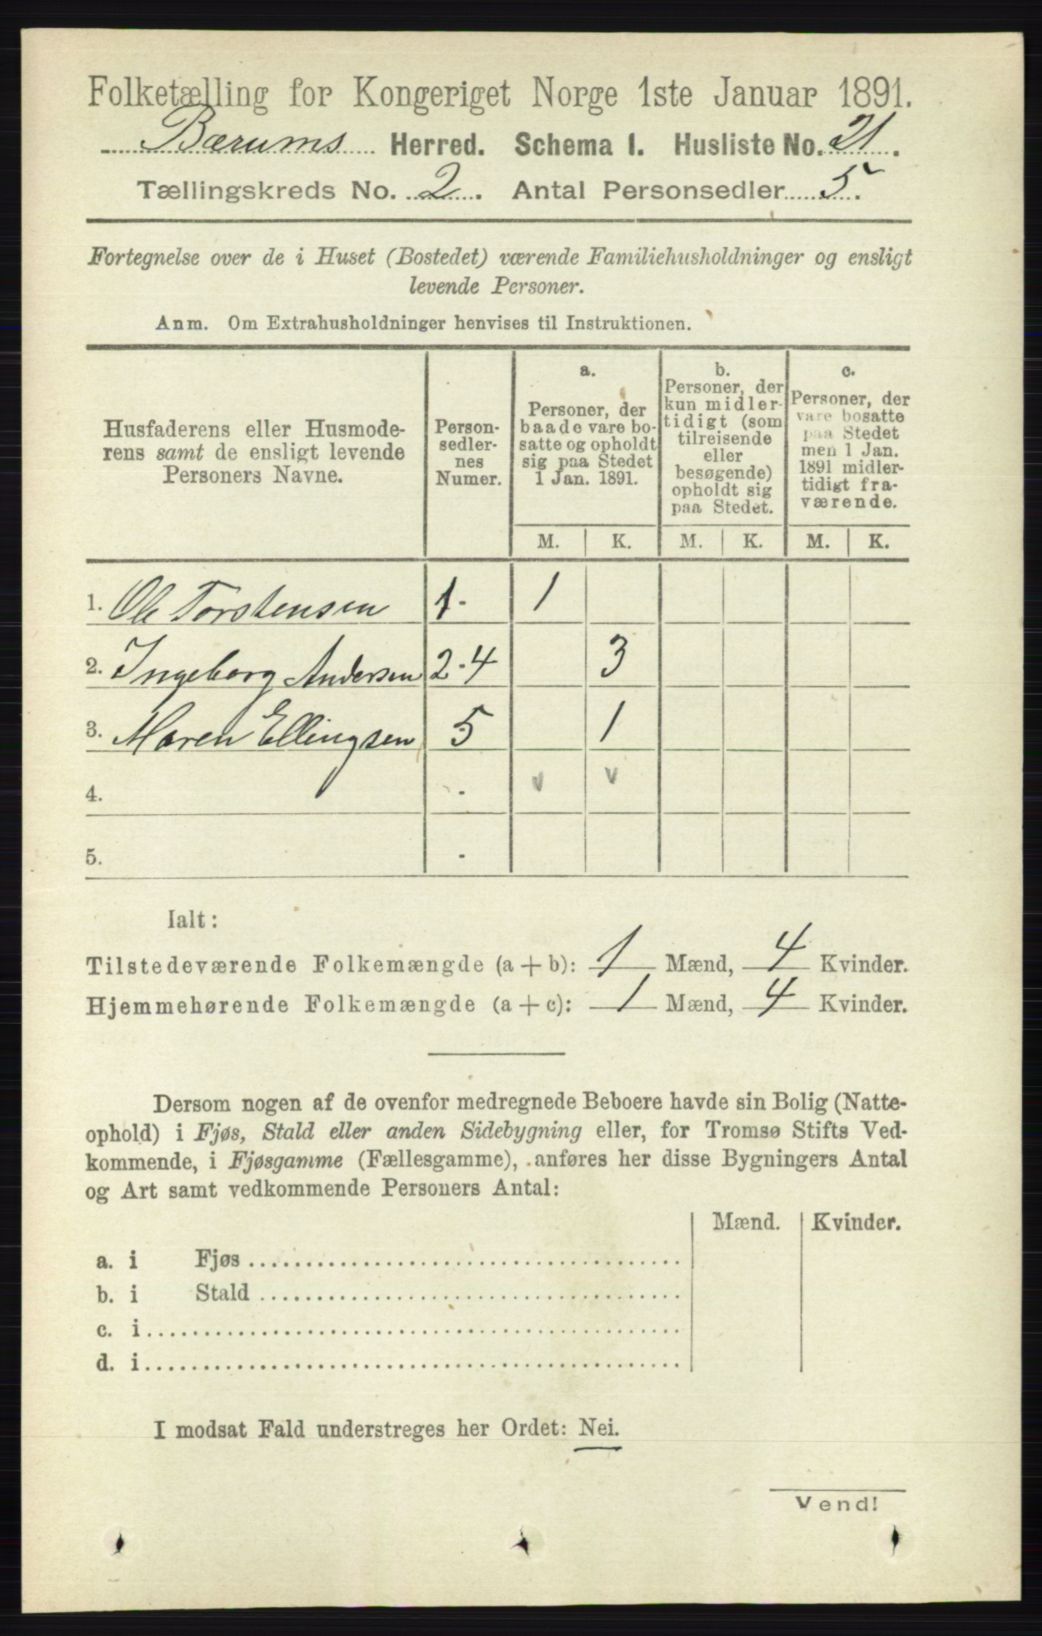 Folketælling for Kongeriget Norge 1ste Januar 1891.
Bærums Herred. Schema I. Husliste No. 21.
Tællingskreds No. 2. Antal Personsedler 5.
Fortegnelse over de i Huset (Bostedet) værende Familiehusholdninger og ensligt
levende Personer.
Anm. Om Extrahusholdninger henvises til Instruktionen.
Husfaderens eller Husmode-
rens samt de ensligt levende
Personers Navne.
Person-
sedler-
nes
Numer.
a.
Personer, der
baade vare bo-
satte og opholdt
sig paa Stedet
1 Jan. 1891.
b.
Personer, der
kun midler-
tidigt (som
tilreisende
eller
besøgende)
opholdt sig
paa Stedet.
c.
Personer, der
vare bosatte
paa Stedet
men 1 Jan.
1891 midler-
tidigt fra-
værende.
M. K. M. K. M. K.
1. Ole Torstensen 1- 1
2. Ingeborg Andersen 2-4 3
3. Maren Ellingsen 5 1
4. - v v
5. -
Ialt:
Tilstedeværende Folkemængde (a + b): 1 Mænd, 4 Kvinder.
Hjemmehørende Folkemængde (a + c): 1 Mænd, 4 Kvinder.
Dersom nogen af de ovenfor medregnede Beboere havde sin Bolig (Natte-
ophold) i Fjøs, Stald eller anden Sidebygning eller, for Tromsø Stifts Ved-
kommende, i Fjøsgamme (Fællesgamme), anføres her disse Bygningers Antal
og Art samt vedkommende Personers Antal:
Mænd. Kvinder.
a. i Fjøs
b. i Stald
c. i
d. i
I modsat Fald understreges her Ordet: Nei.
Vend!